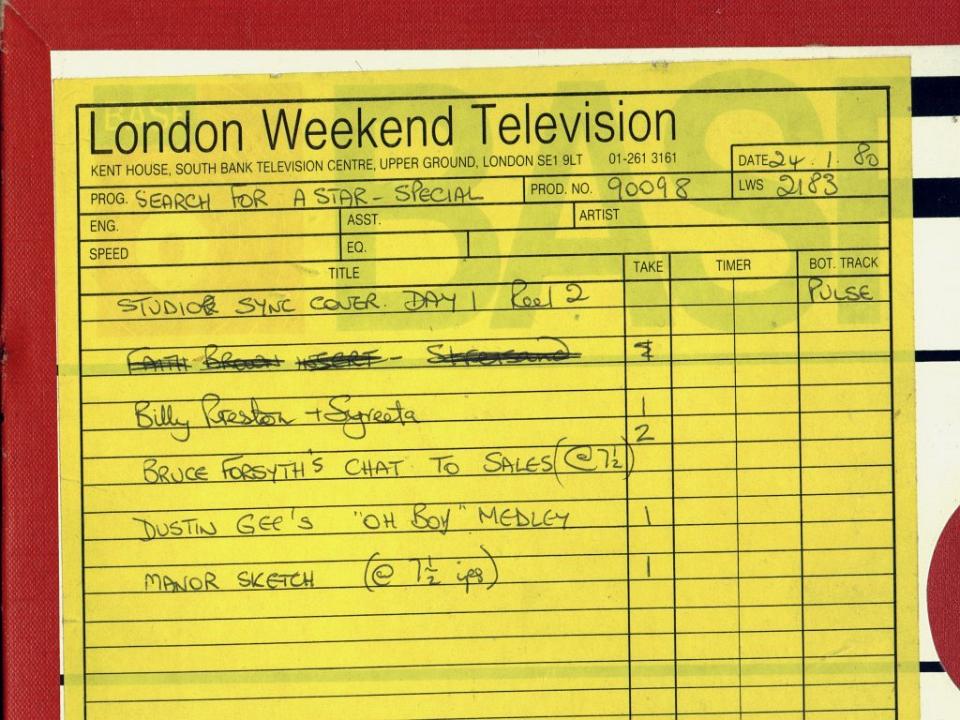 BASF
London Weekend Television
KENT HOUSE, SOUTH BANK TELEVISION CENTRE, UPPER GROUND, LONDON SE1 9LT 01-261 3161
DATE 24.1.80
PROG. SEARCH FOR A STAR - SPECIAL PROD. NO. 90098 LWS 2183
ENG. ASST. ARTIST
SPEED EQ.
TITLE TAKE TIMER BOT. TRACK
STUDIO SYNC COVER. DAY 1 Reel 2 PULSE
FAITH BROWN INSERT - Streisand
Billy Preston + Syreeta 1
2
BRUCE FORSYTH'S CHAT TO SALES (@ 7½)
DUSTIN GEE'S "OH BOY" MEDLEY 1
MANOR SKETCH (@ 7½ ips) 1